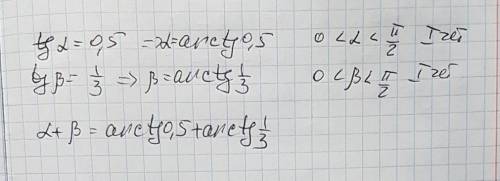 tgα = 0,5 ⇒ α = arctg 0,5 0 < α < π/2 - I чет
tgβ = 1/3 ⇒ β = arctg 1/3 0 < β < π/2 - I чет
α + β = arctg 0,5 + arctg 1/3